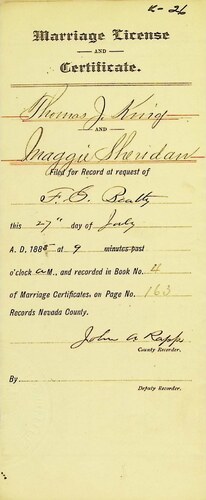 K-26
Marriage License
AND
Certificate.
Thomas J. King
AND
Maggie Sheridan
Filed for Record at request of
F. D. Beatty
this 27" day of July
A. D. 1885 at 9 minutes past
o'clock A M., and recorded in Book No. 4
of Marriage Certificates, on Page No. 163
Records Nevada County.
John A. Rapp
County Recorder.
By
Deputy Recorder.